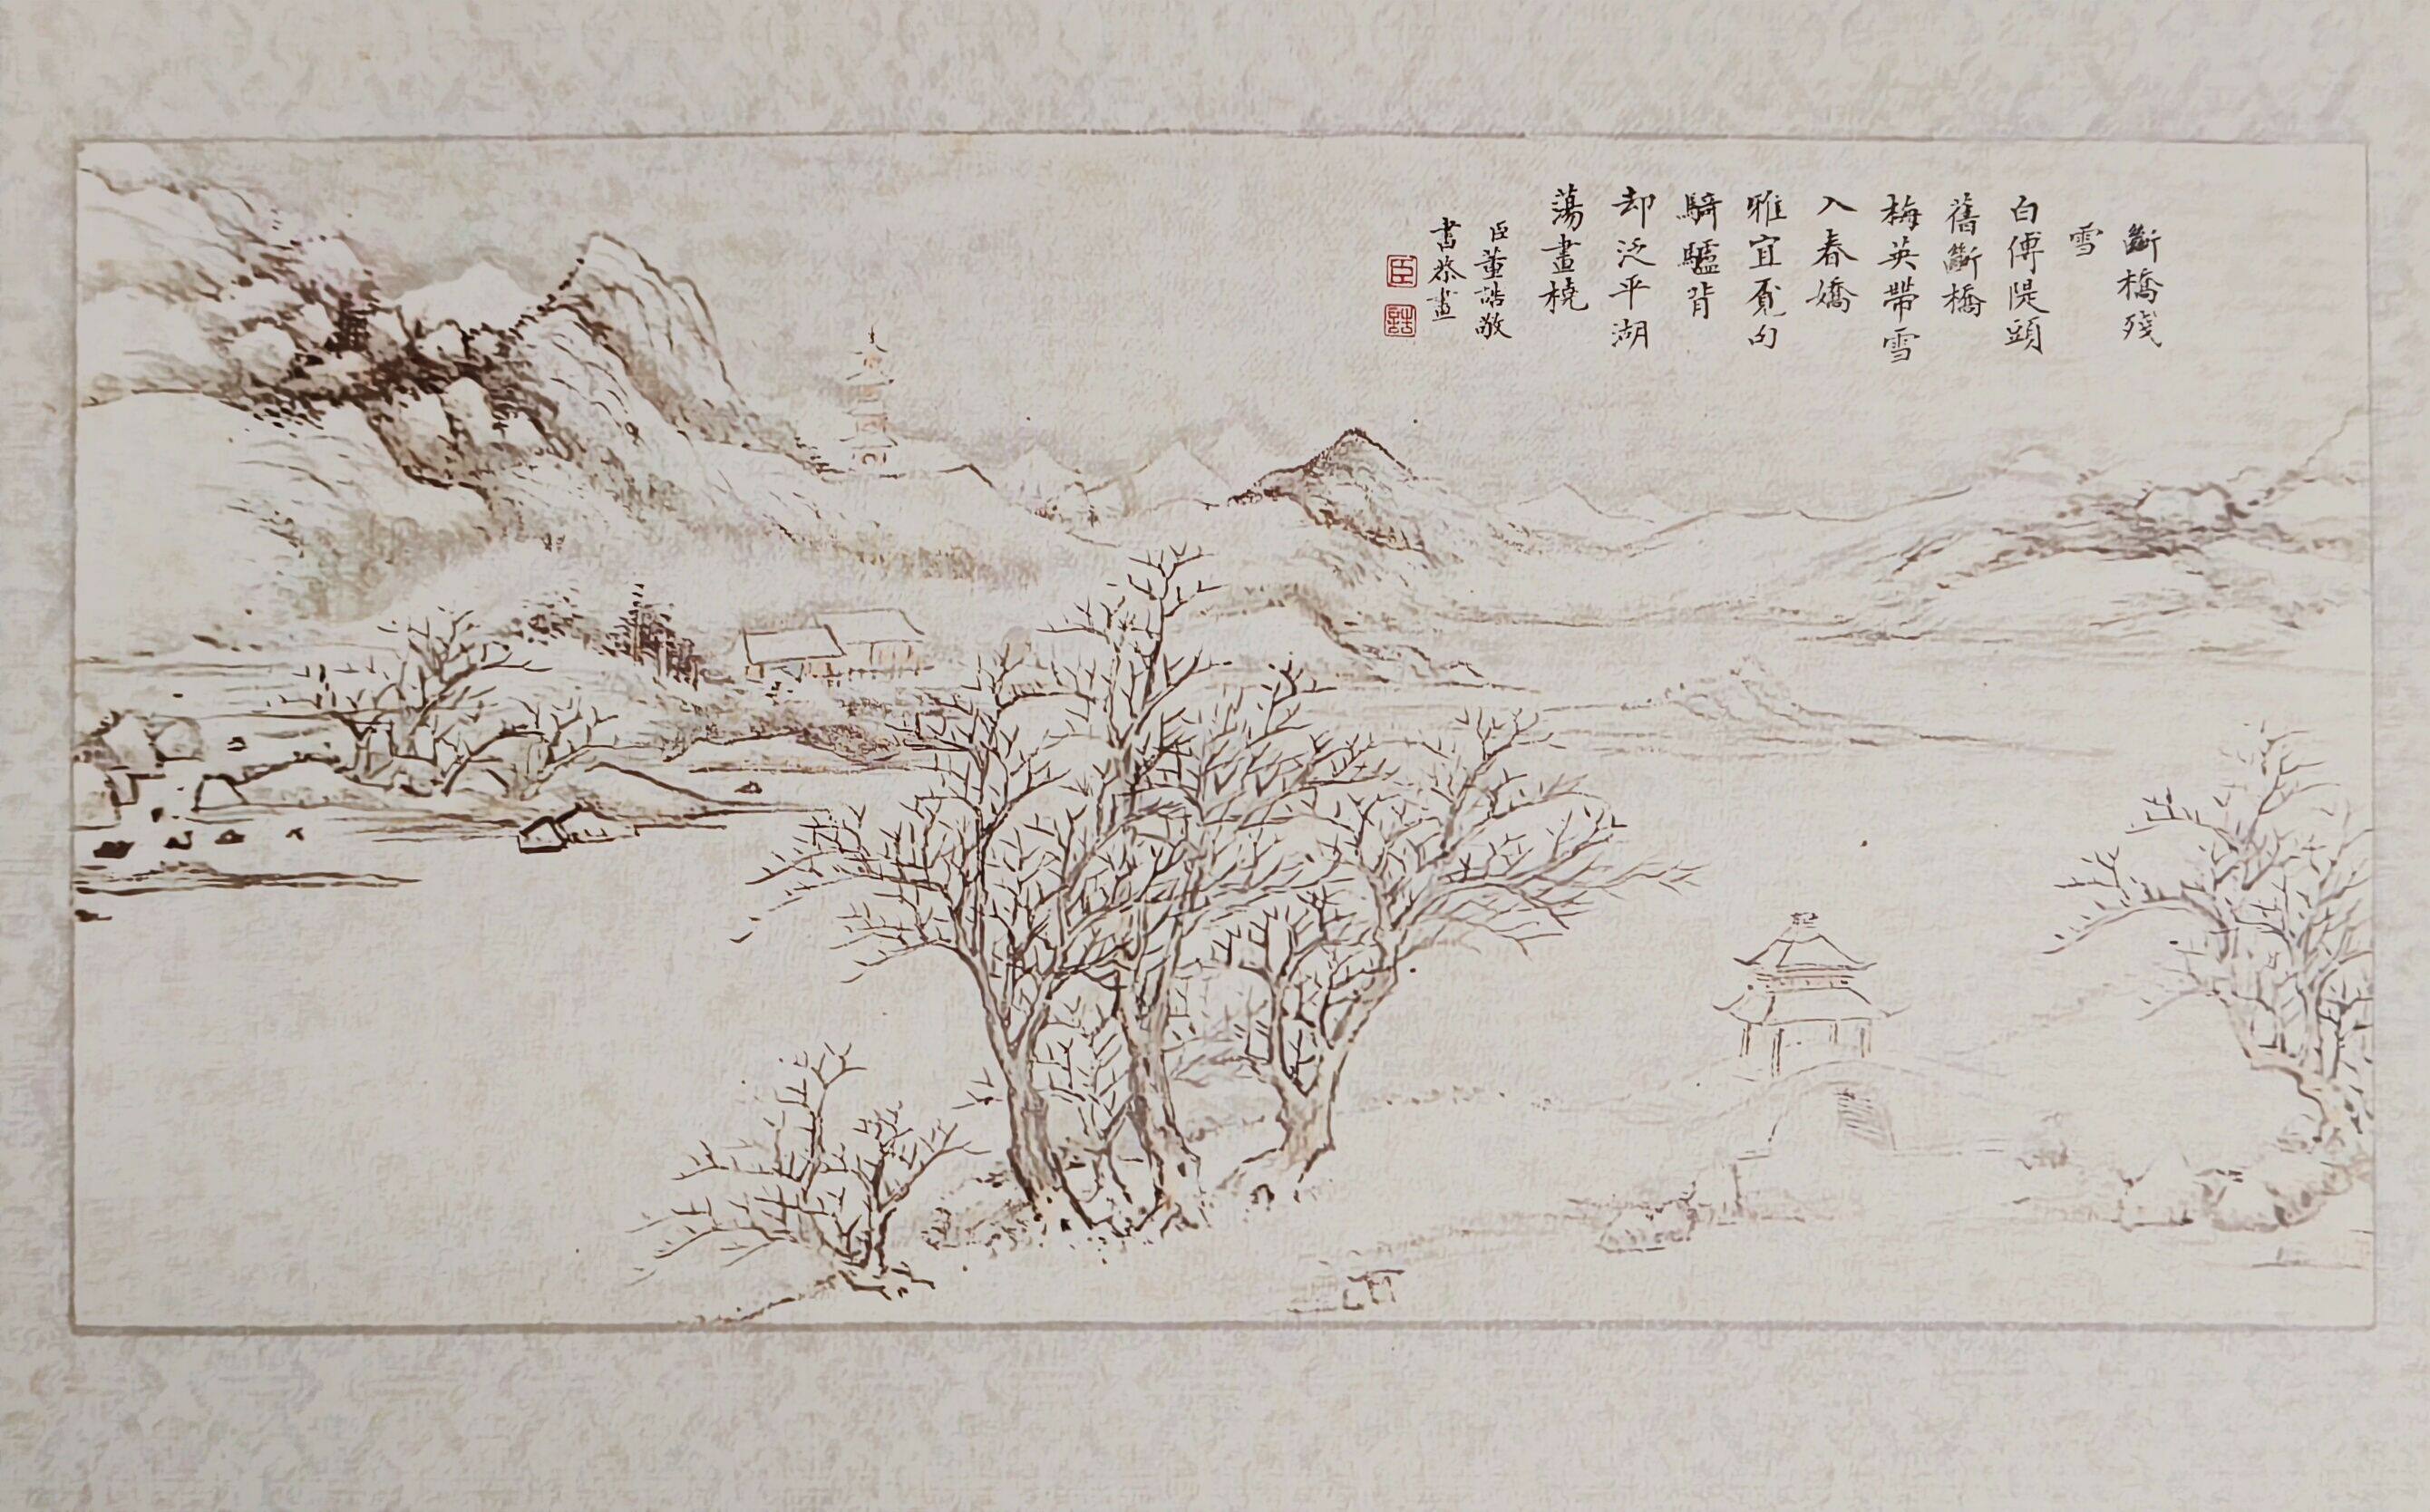 斷橋殘
雪
白傅隄頭
舊斷橋
梅英帶雪
入春嬌
雅宜覓句
騎驢背
却泛平湖
蕩畫橈
臣董誥敬
書恭畫
臣
誥